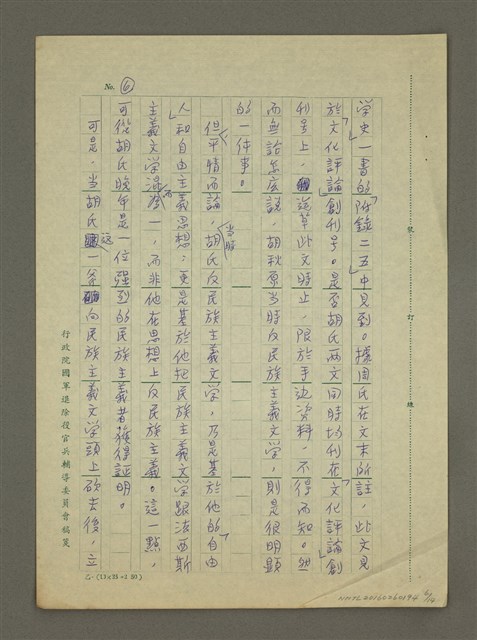 No. 6
學史一書的附錄二五中見到。據周氏在文末所註，此文見
於「文化評論」創刊号。是否胡氏兩文同時均刊在「文化評論」創
刊号上，迄草此文時止，限於手边資料，不得而知。然
而無論怎麽說，胡秋原当時反民族主義文学，則是很明顯
的一件事。
但平情而論，胡氏當時反民族主義文学，乃是基於他的「自由
人」和自由主義思想；更是基於他把民族主義文学跟法西斯
主義文学混為一，而非他在思想上反民族主義。這一點，
可從胡氏晚年是一位強烈的民族主義者獲得証明。
可是，当胡氏這一斧向民族主義文学頭上砍去後，立
行政院國軍退除役官兵輔導委員會稿箋
裝訂線
NMTL20160260194 6/14